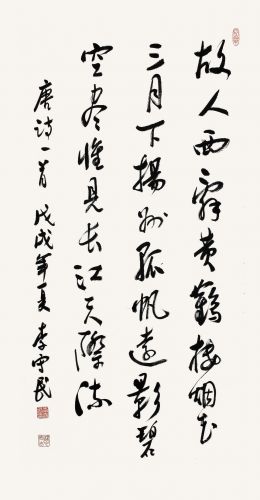 故人西辭黄鶴楼烟花
三月下揚州孤帆遠影碧
空尽惟見长江天際流
唐诗一首 戊戌年夏 李民